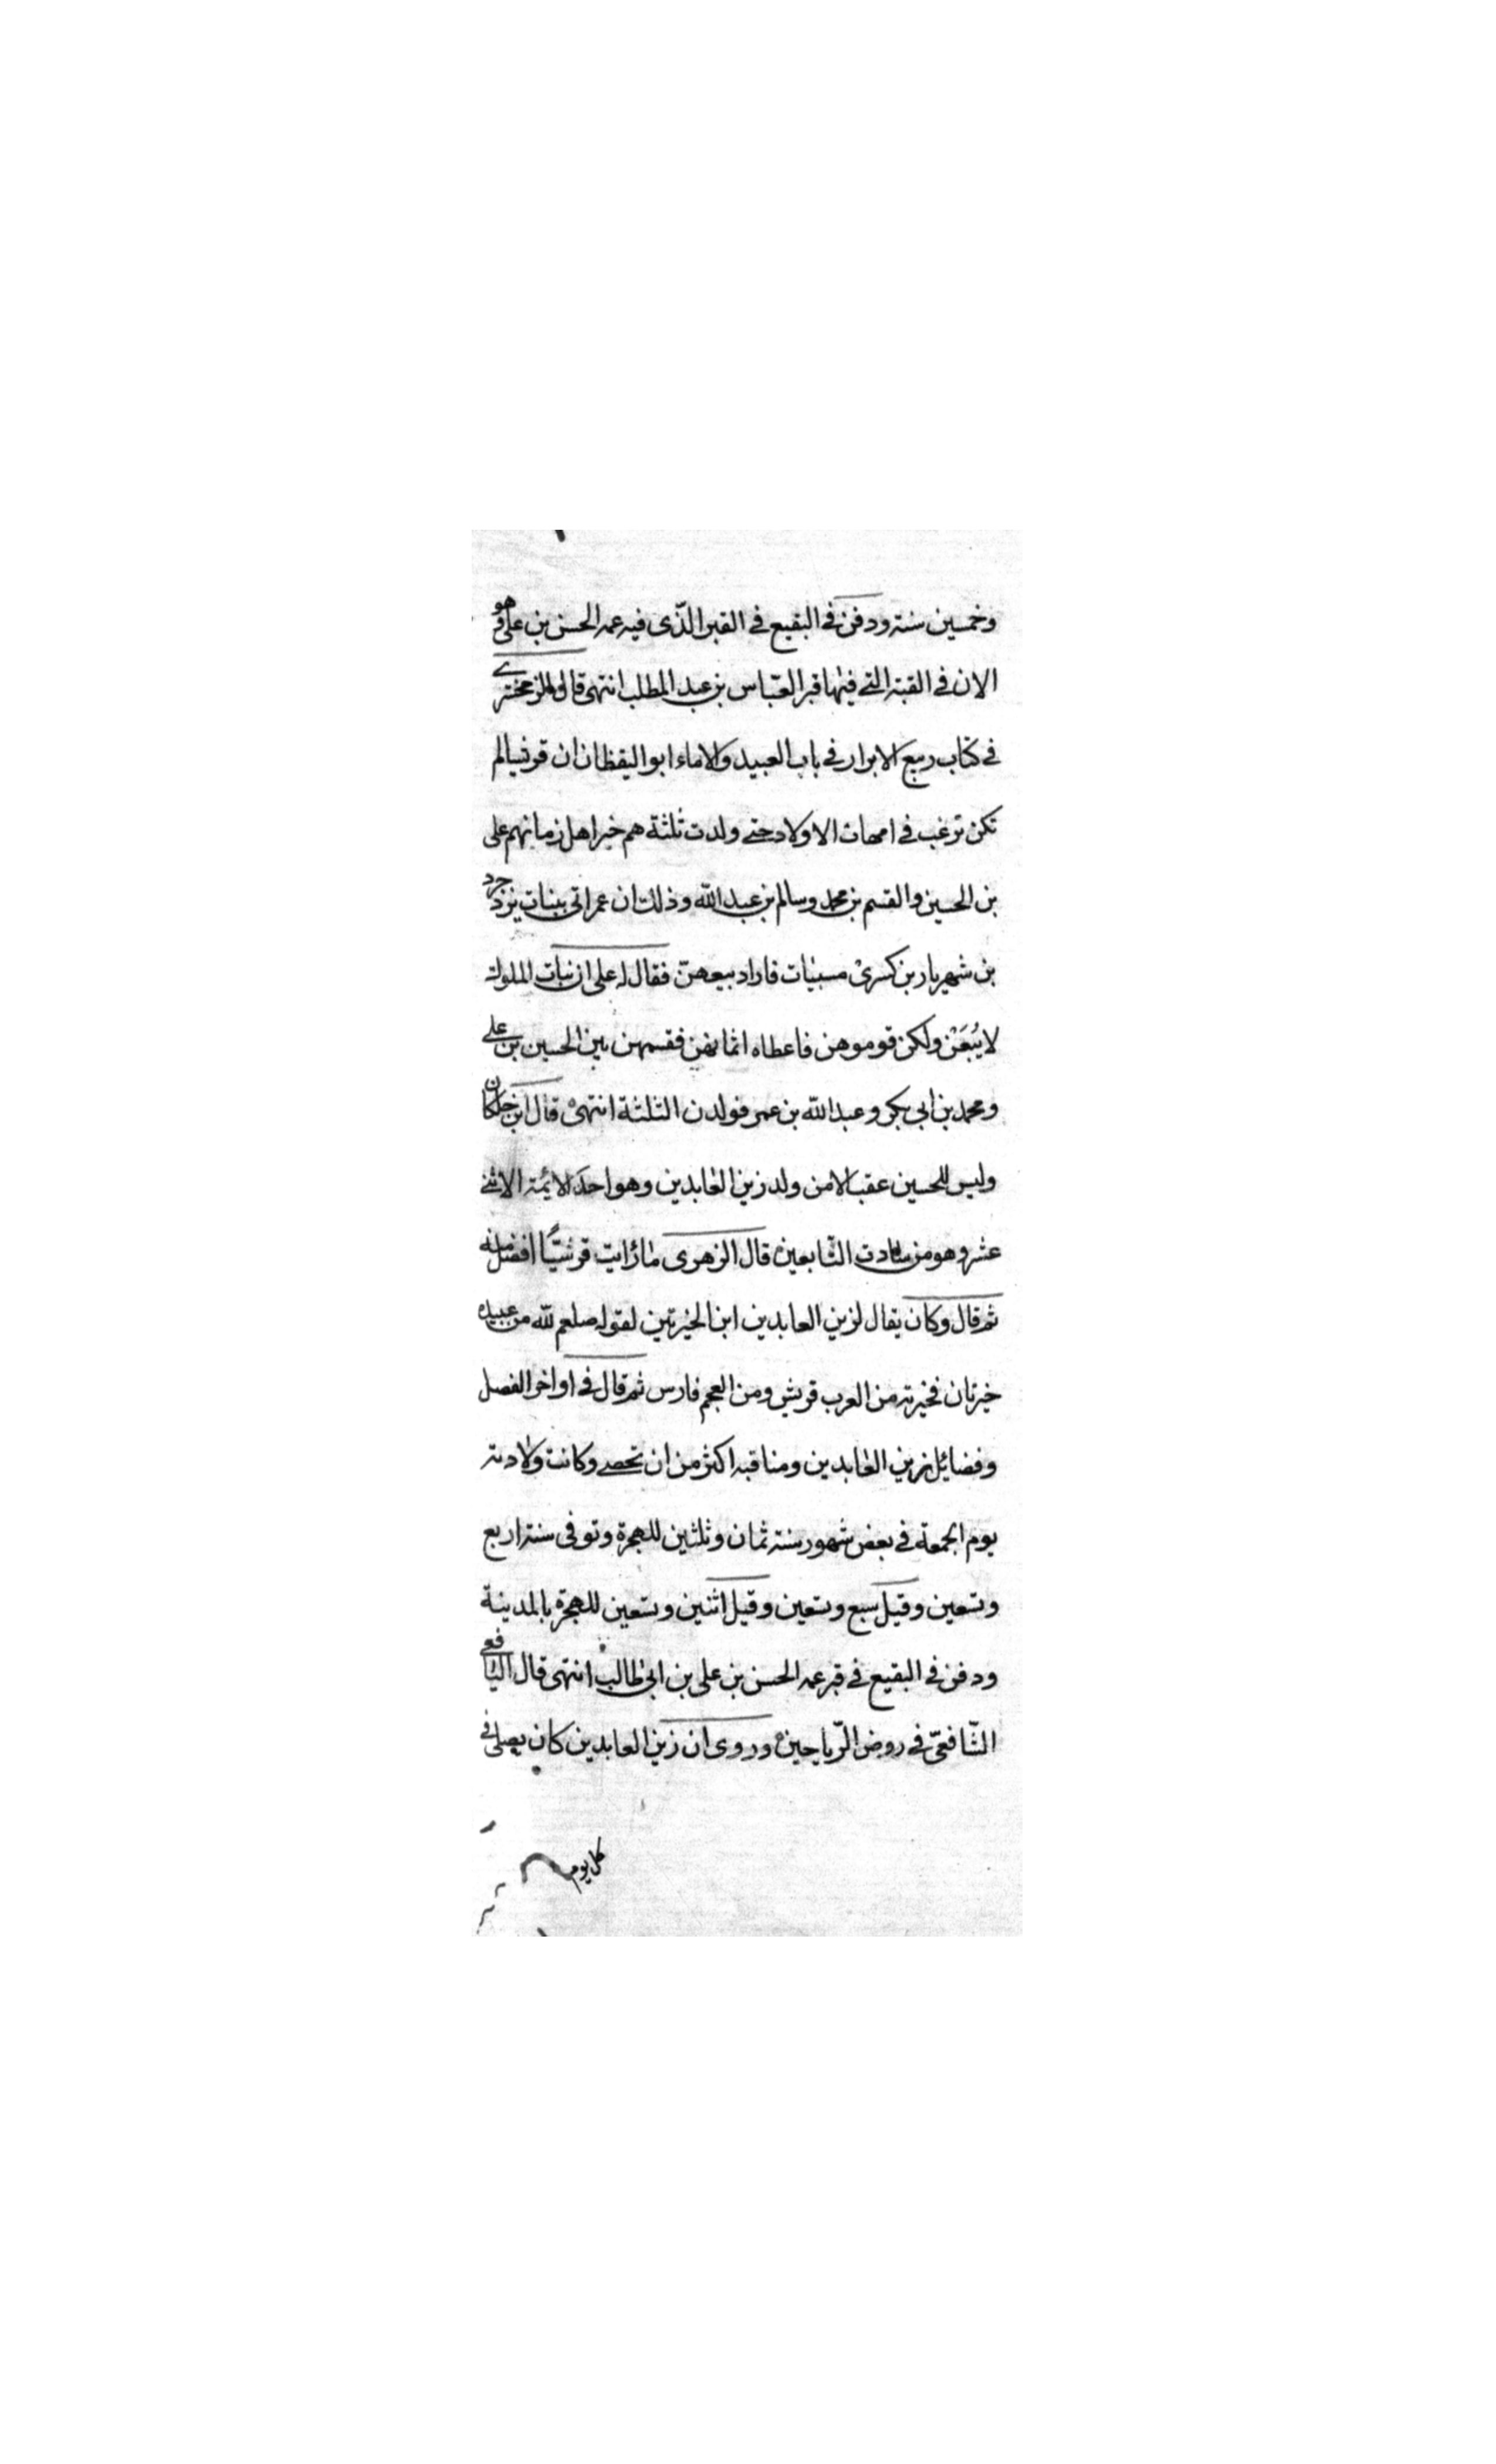 وخمسين سنة ودفن في البقيع في القبر الذّى فيه عمه الحسن بن على وهو
الان في القبة التي فيها قبر العبّاس بن عبد المطلب انتهى قال الزمخشرے
في كتاب ربيع الابرار في باب العبيد والاماء ابو اليقظان ان قريشا لم
تكن ترغب في امهات الاولاد حتے ولدت ثلثة هم خير اهل زمانهم على
بن الحسين والقسم بن محمد وسالم بن عبد الله وذلك ان عمر اتى ببنات يزدجرد
بن شهريار بن كسرىٰ مسبيات فاراد بيعهنّ فقال له على ان بنات الملوك
لا يُبَعْن ولكن قوموهن فاعطاه اثمانهن فقسمهن بين الحسين بن علے
ومحمد بن ابى بكر وعبد الله بن عمر فولدن الثلثة انتهىٰ قال ابن خلكان
وليس للحسين عقب الا من ولد زين العابدين وهو احد الائمة الاثنے
عشر وهو من سادت التّابعين قال الزهرى ما رايت قرشيًّا افضل منه
ثم قال وكان يقال لزين العابدين ابن الخيرتين لقوله صلعم لله من عبيده
خيرتان فخيرته من العرب قريش ومن العجم فارس ثم قال في اواخر الفصل
وفضائل زين العابدين ومناقبه اكثر من ان تحصے وكانت ولادته
يوم الجمعة في بعض شهور سنة ثمان وثلثين للهجرة وتوفى سنة اربع
وتسعين وقيل سبع وتسعين وقيل اثنين وتسعين للهجرة بالمدينة
ودفن في البقيع في قبر عمه الحسن بن على بن ابى طالب انتهى قال اليافعى
الشّافعىّ في روض الرّياحين وروى ان زين العابدين كان يصلى في
كل يوم